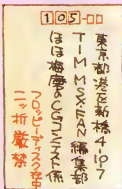 105-□□
東京都港区新橋4-10-7
TIM MSX・FAN編集部
ほほ梅麿のCGコンテスト係
フロッピーディスク在中
二ツ折厳禁